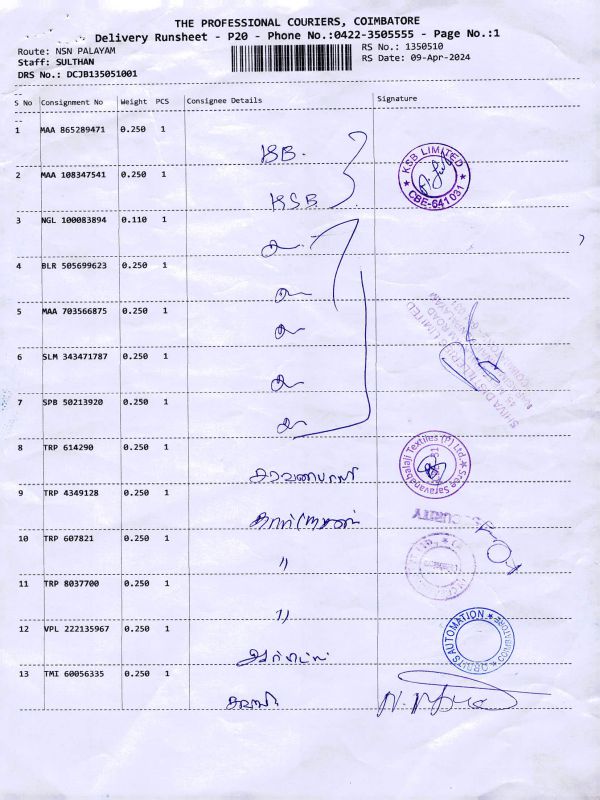 THE PROFESSIONAL COURIERS, COIMBATORE
Delivery Runsheet - P20 - Phone No.:0422-3505555 - Page No.:1
Route: NSN PALAYAM RS No.: 1350510
Staff: SULTHAN RS Date: 09-Apr-2024
DRS No.: DCJB135051001
S No Consignment No Weight PCS Consignee Details Signature
1 MAA 865289471 0.250 1 KSB.
KSB LIMITED CBE-641031
2 MAA 108347541 0.250 1 KSB
3 NGL 100083894 0.110 1
4 BLR 505699623 0.250 1
5 MAA 703566875 0.250 1
6 SLM 343471787 0.250 1
7 SPB 50213920 0.250 1
8 TRP 614290 0.250 1 சரவணபாலாஜி
Sree Saravanabalaji Textiles (P) Ltd.
9 TRP 4349128 0.250 1
SECURITY
10 TRP 607821 0.250 1 "
11 TRP 8037700 0.250 1 "
12 VPL 222135967 0.250 1
ORBITS AUTOMATION COIMBATORE
13 TMI 60056335 0.250 1